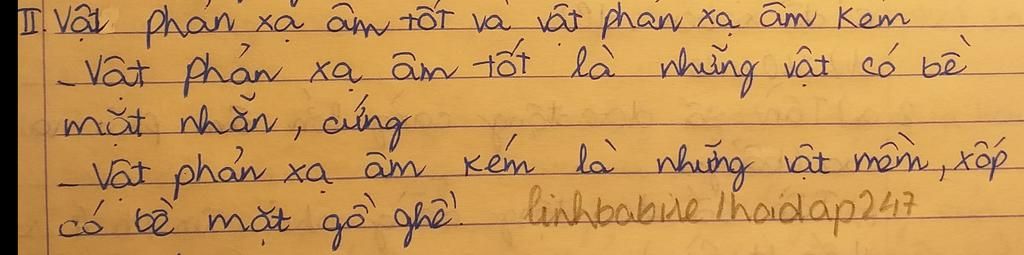 II. Vật phản xạ âm tốt và vật phản xạ âm kém
- Vật phản xạ âm tốt là những vật có bề
mặt nhẵn, cứng
- Vật phản xạ âm kém là những vật mềm, xốp
có bề mặt gồ ghề. linhbabie/hoidap247